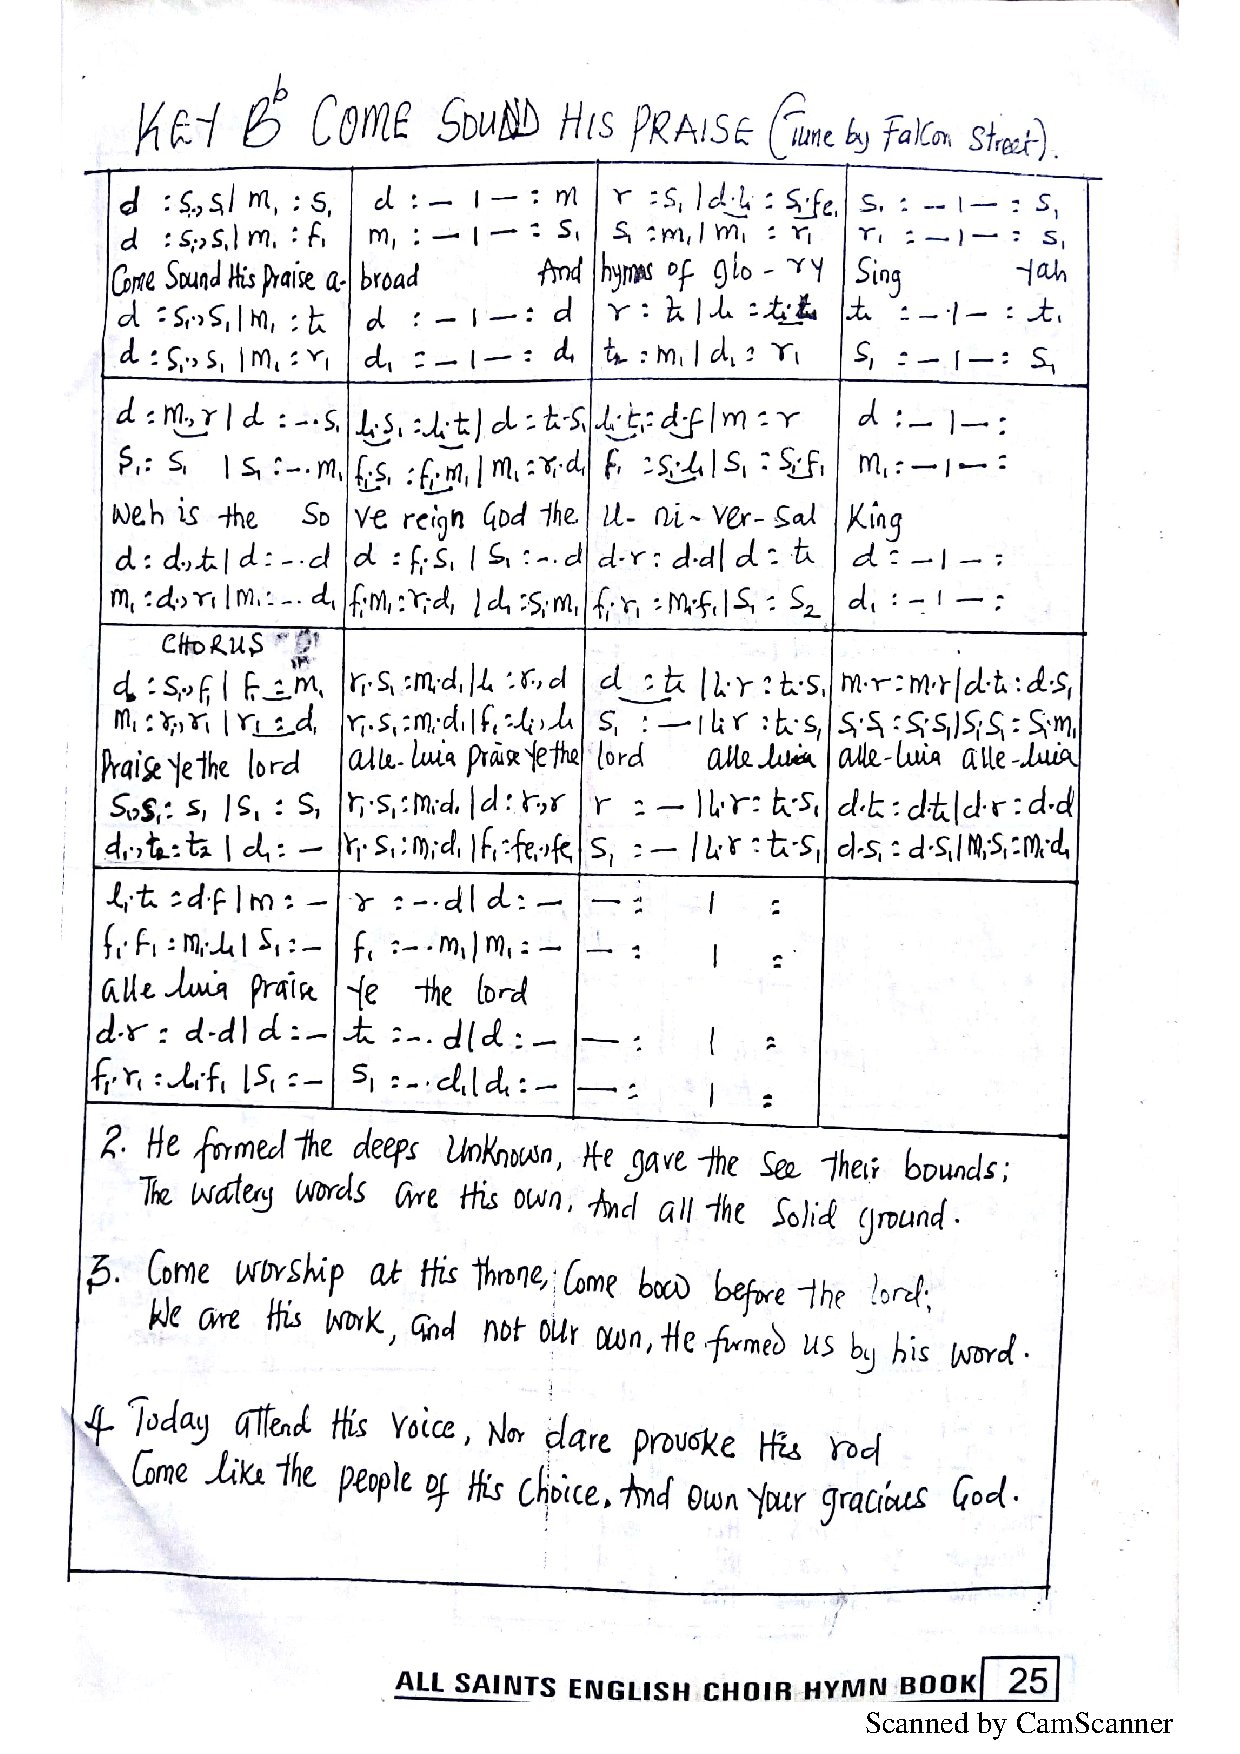 KEY Bb COME SOUND HIS PRAISE (Tune by Falcon Street).
d :s₁.,s₁| m₁ :s₁ | d :–|–:m | r :s₁|d.l₁:s₁.fe₁ | s₁ :–|–:s₁
d :s₁.,s₁|m₁ :f₁ | m₁ :–|–:s₁ | s₁ :m₁|m₁ :r₁ | r₁ :–|–: s₁
Come Sound His Praise a- broad And hymns of glo-ry Sing Jah
d :s₁.,s₁|m₁ :t₁ | d :–|–: d | r : t₁|l₁ :t₁.t₁ | t₁ :–|–: t₁
d :s₁.,s₁ |m₁:r₁ | d₁ :–|–: d₁ | t₂ :m₁|d₁ : r₁ | s₁ :–|–: s₁
d :m.,r|d :–.s₁ | l₁.s₁ :l₁.t₁| d :t₁.s₁ | l₁.t₁:d.f|m :r | d :–|–:
s₁: s₁ |s₁ :–.m₁ | f₁.s₁ :f₁.m₁|m₁:r₁.d₁ | f₁ :s₁.l₁|s₁ :s₁.f₁ | m₁:–|–:
Weh is the So ve reign God the U-ni-ver-sal King
d: d.,t₁|d:–.d | d :f₁.s₁ |s₁ :–.d | d.r: d.d|d :t₁ | d :–|–:
m₁ :d₁.,r₁|m₁:–.d₁ | f₁.m₁:r₁.d₁ |d₁ :s₁.m₁ | f₁.r₁ :m₁.f₁|s₁ :s₂ | d₁ :–|–:
CHORUS
d :s₁.,f₁| f₁ :m₁ | r₁.s₁ :m₁.d₁|l₁ :r.,d | d :t₁ |l₁.r :t₁.s₁ | m.r:m.r|d.t₁:d.s₁
m₁ :r₁.,r₁ |r₁ :d₁ | r₁.s₁:m₁.d₁|f₁:l₁.,l₁ | s₁ :–|l₁.r :t₁.s₁ | s₁.s₁:s₁.s₁|s₁.s₁:s₁.m₁
Praise Ye the lord alle-luia praise Ye the lord alle luia alle-luia alle-luia
s₁.,s₁: s₁ |s₁ : s₁ | r₁.s₁:m₁.d₁ |d: r.,r | r :–|l₁.r:t₁.s₁ | d.t₁:d.t₁|d.r:d.d
d₁.,t₂:t₂ | d₁ :– | r₁.s₁:m₁.d₁ |f₁:fe₁.,fe₁ | s₁ :–|l₁.r :t₁.s₁ | d.s₁:d.s₁|m₁.s₁:m₁.d₁
l₁.t₁ :d.f|m :– | r :–.d|d :– | – : | :
f₁.f₁ :m₁.l₁|s₁ :– | f₁ :–.m₁|m₁ :– | – : | :
alle luia praise Ye the lord
d.r : d.d|d :– | t₁ :–.d|d :– | – : | :
f₁.r₁ :l₁.f₁ |s₁ :– | s₁ :–.d₁|d₁ :– | – : | :
2. He formed the deeps Unknown, He gave the See their bounds;
The watery words are His own, And all the Solid ground.
3. Come worship at His throne, Come bow before the lord;
We are His work, and not our own, He formed us by his word.
4 Today attend His Voice, Nor dare provoke His rod
Come like the people of His Choice, And own Your gracious God.
ALL SAINTS ENGLISH CHOIR HYMN BOOK 25
Scanned by CamScanner